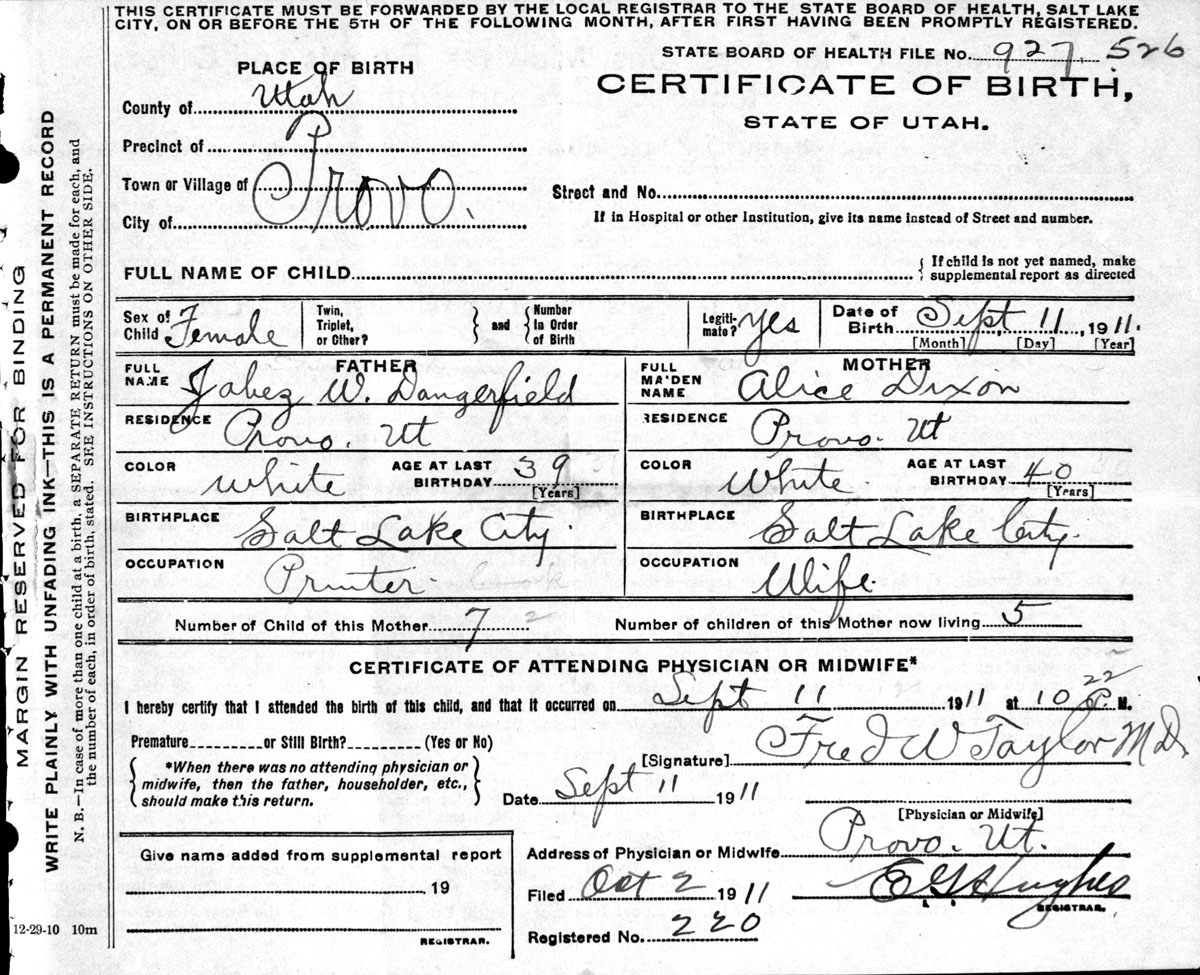 THIS CERTIFICATE MUST BE FORWARDED BY THE LOCAL REGISTRAR TO THE STATE BOARD OF HEALTH, SALT LAKE
CITY, ON OR BEFORE THE 5TH OF THE FOLLOWING MONTH, AFTER FIRST HAVING BEEN PROMPTLY REGISTERED.
STATE BOARD OF HEALTH FILE No. 927, 526
PLACE OF BIRTH
CERTIFICATE OF BIRTH,
STATE OF UTAH.
County of Utah
Precinct of
Town or Village of Provo.
City of
Street and No.
If in Hospital or other Institution, give its name instead of Street and number.
FULL NAME OF CHILD
{ If child is not yet named, make
supplemental report as directed
Sex of Child Female
Twin, Triplet, or Other? } and { Number In Order of Birth
Legitimate? yes
Date of Birth Sept 11, 1911.
[Month] [Day] [Year]
FATHER
FULL NAME Jabez W. Dangerfield
MOTHER
FULL MAIDEN NAME Alice Dixon
RESIDENCE Provo. Ut
RESIDENCE Provo. Ut
COLOR White AGE AT LAST BIRTHDAY 39 [Years]
COLOR White AGE AT LAST BIRTHDAY 40 [Years]
BIRTHPLACE Salt Lake City.
BIRTHPLACE Salt Lake City.
OCCUPATION Printer
OCCUPATION Wife.
Number of Child of this Mother 7 2
Number of children of this Mother now living 5
CERTIFICATE OF ATTENDING PHYSICIAN OR MIDWIFE*
I hereby certify that I attended the birth of this child, and that it occurred on Sept 11 1911 at 10 22 P. M.
Premature or Still Birth? (Yes or No)
[Signature] Fred W Taylor M D.
{ *When there was no attending physician or
midwife, then the father, householder, etc.,
should make this return. }
Date Sept 11 1911
[Physician or Midwife]
Address of Physician or Midwife Provo. Ut.
Give name added from supplemental report
19
REGISTRAR.
Filed Oct 2 1911
E G Hughes
REGISTRAR.
Registered No. 220
12-29-10 10m
MARGIN RESERVED FOR BINDING
WRITE PLAINLY WITH UNFADING INK—THIS IS A PERMANENT RECORD
N. B.—In case of more than one child at a birth, a SEPARATE RETURN must be made for each, and
the number of each, in order of birth, stated. SEE INSTRUCTIONS ON OTHER SIDE.